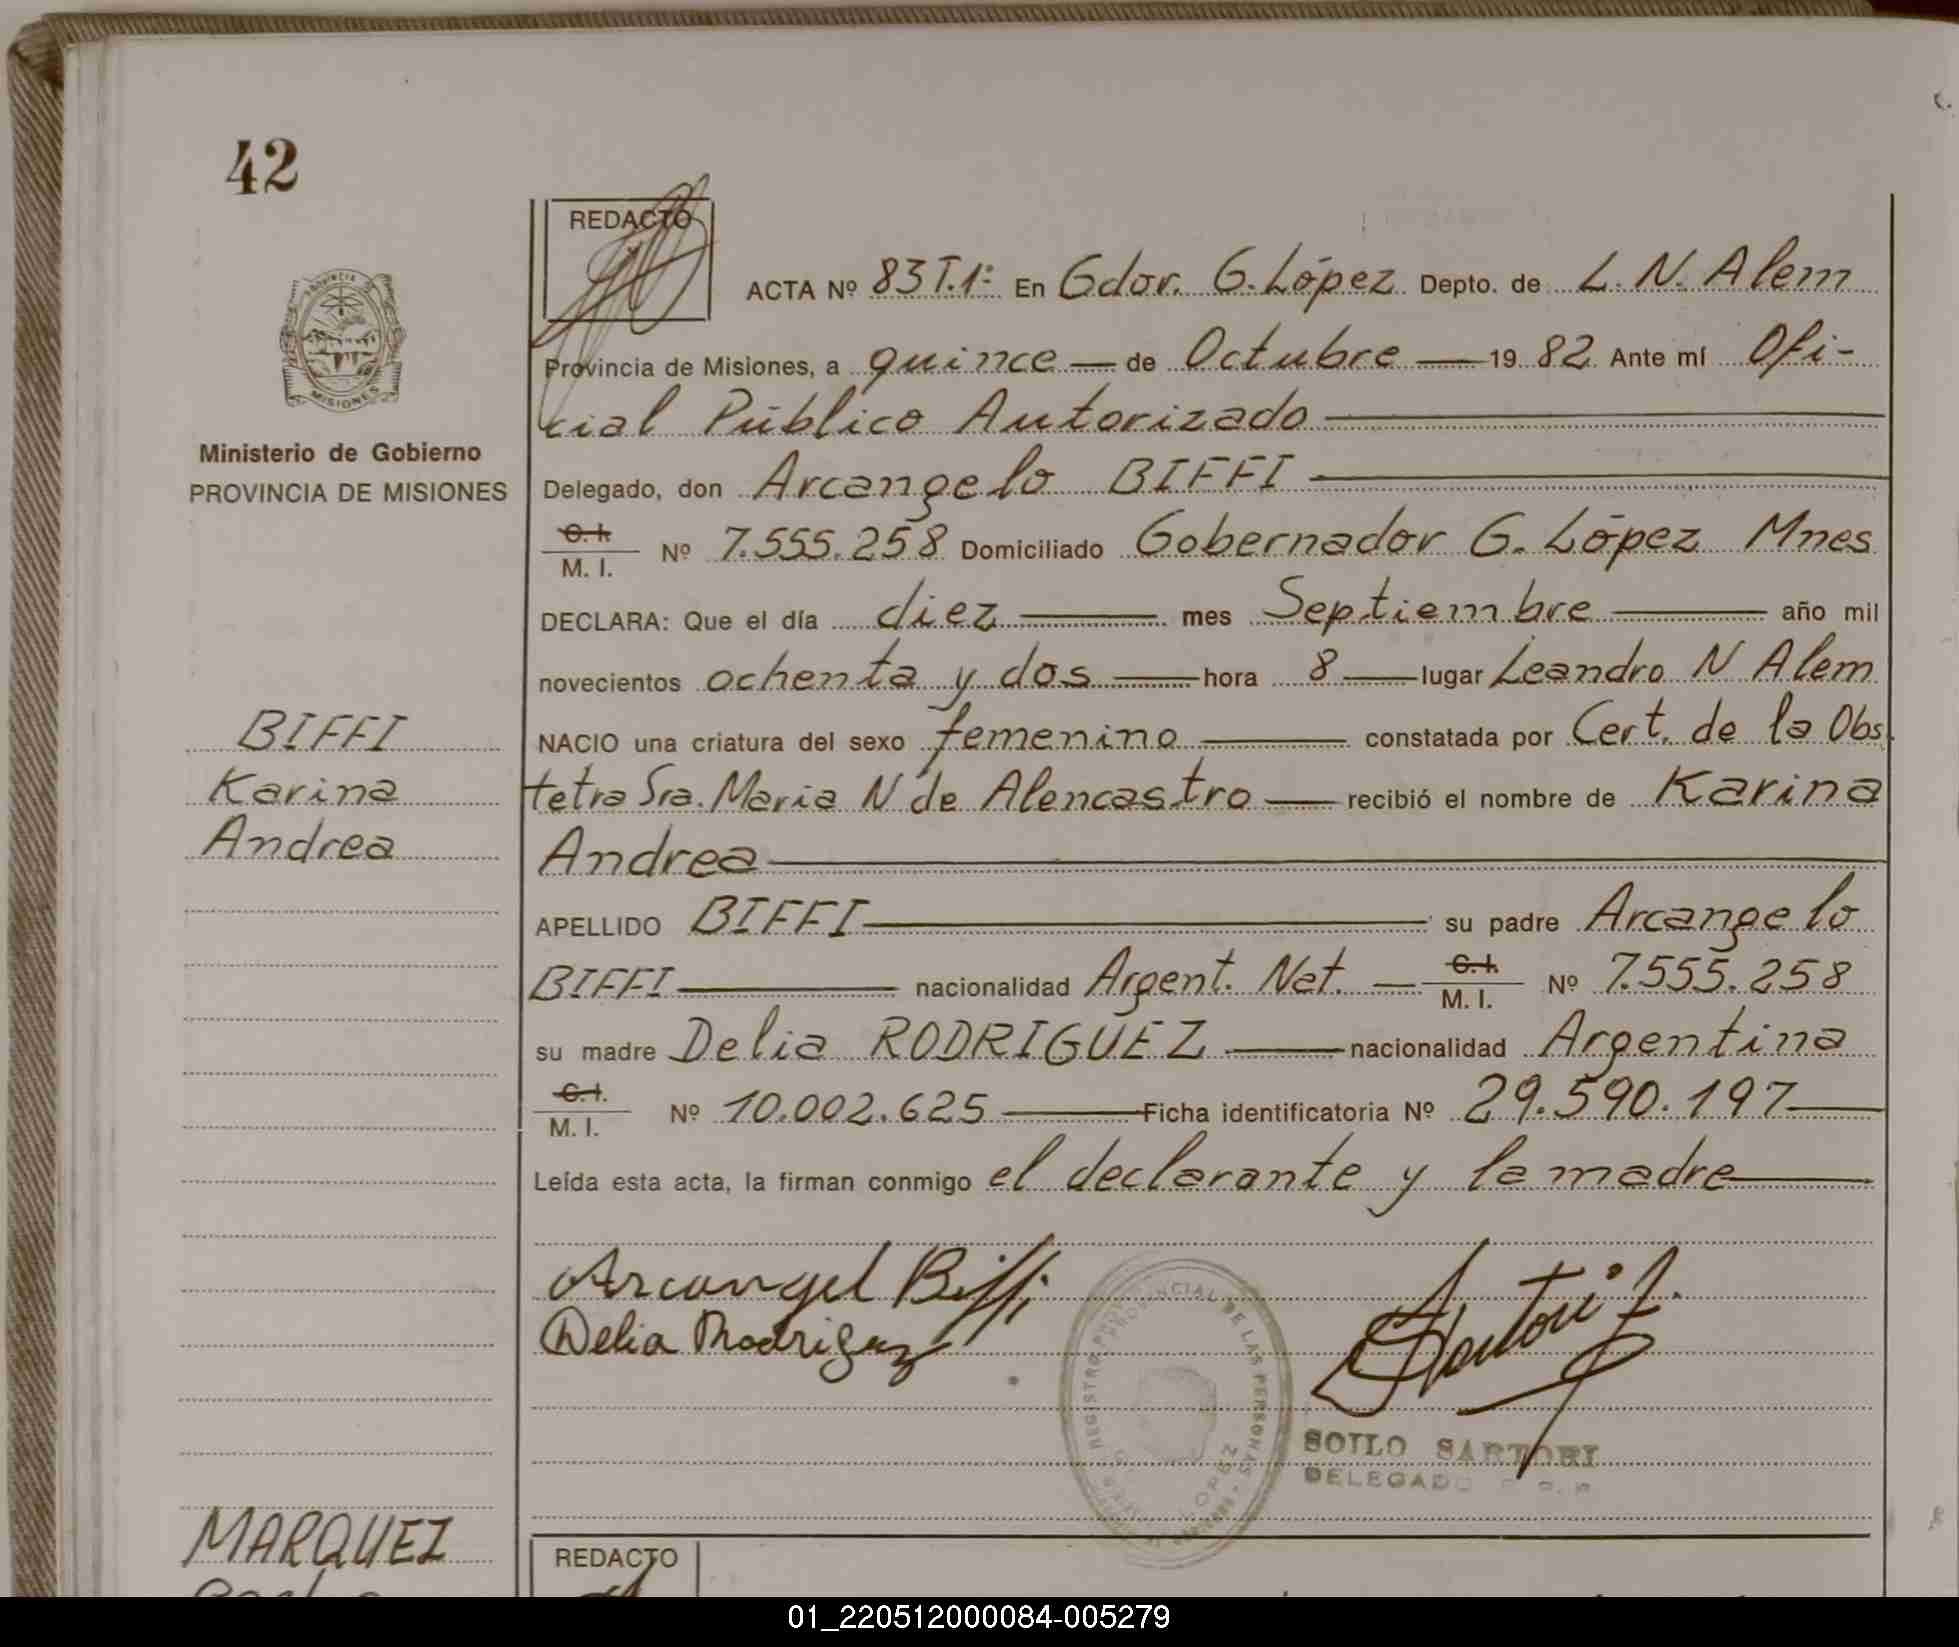 42
REDACTO
ACTA Nº 83 T.1º En Gdor. G. López Depto. de L. N. Alem
Provincia de Misiones, a quince — de Octubre — 19 82 Ante mí Ofi-
cial Público Autorizado
Delegado, don Arcangelo BIFFI
PROVINCIA
MISIONES
Ministerio de Gobierno
PROVINCIA DE MISIONES
C. I.
M. I. Nº 7.555.258 Domiciliado Gobernador G. López Mnes
DECLARA: Que el día diez — mes Septiembre — año mil
novecientos ochenta y dos — hora 8 — lugar Leandro N Alem
BIFFI
Karina
Andrea
NACIO una criatura del sexo femenino — constatada por Cert. de la Obs
tetra Sra. Maria N de Alencastro — recibió el nombre de Karina
Andrea
APELLIDO BIFFI — su padre Arcangelo
BIFFI — nacionalidad Argent. Nat. — C. I. M. I. Nº 7.555.258
su madre Delia RODRIGUEZ — nacionalidad Argentina
C. I.
M. I. Nº 10.002.625 — Ficha identificatoria Nº 29.590.197 —
Leída esta acta, la firman conmigo el declarante y la madre —
Arcangel Biffi
Delia Rodriguez
Sartori
REGISTRO PROVINCIAL DE LAS PERSONAS
LOPEZ
SOILO SARTORI
DELEGADO
MARQUEZ
REDACTO
01_220512000084-005279